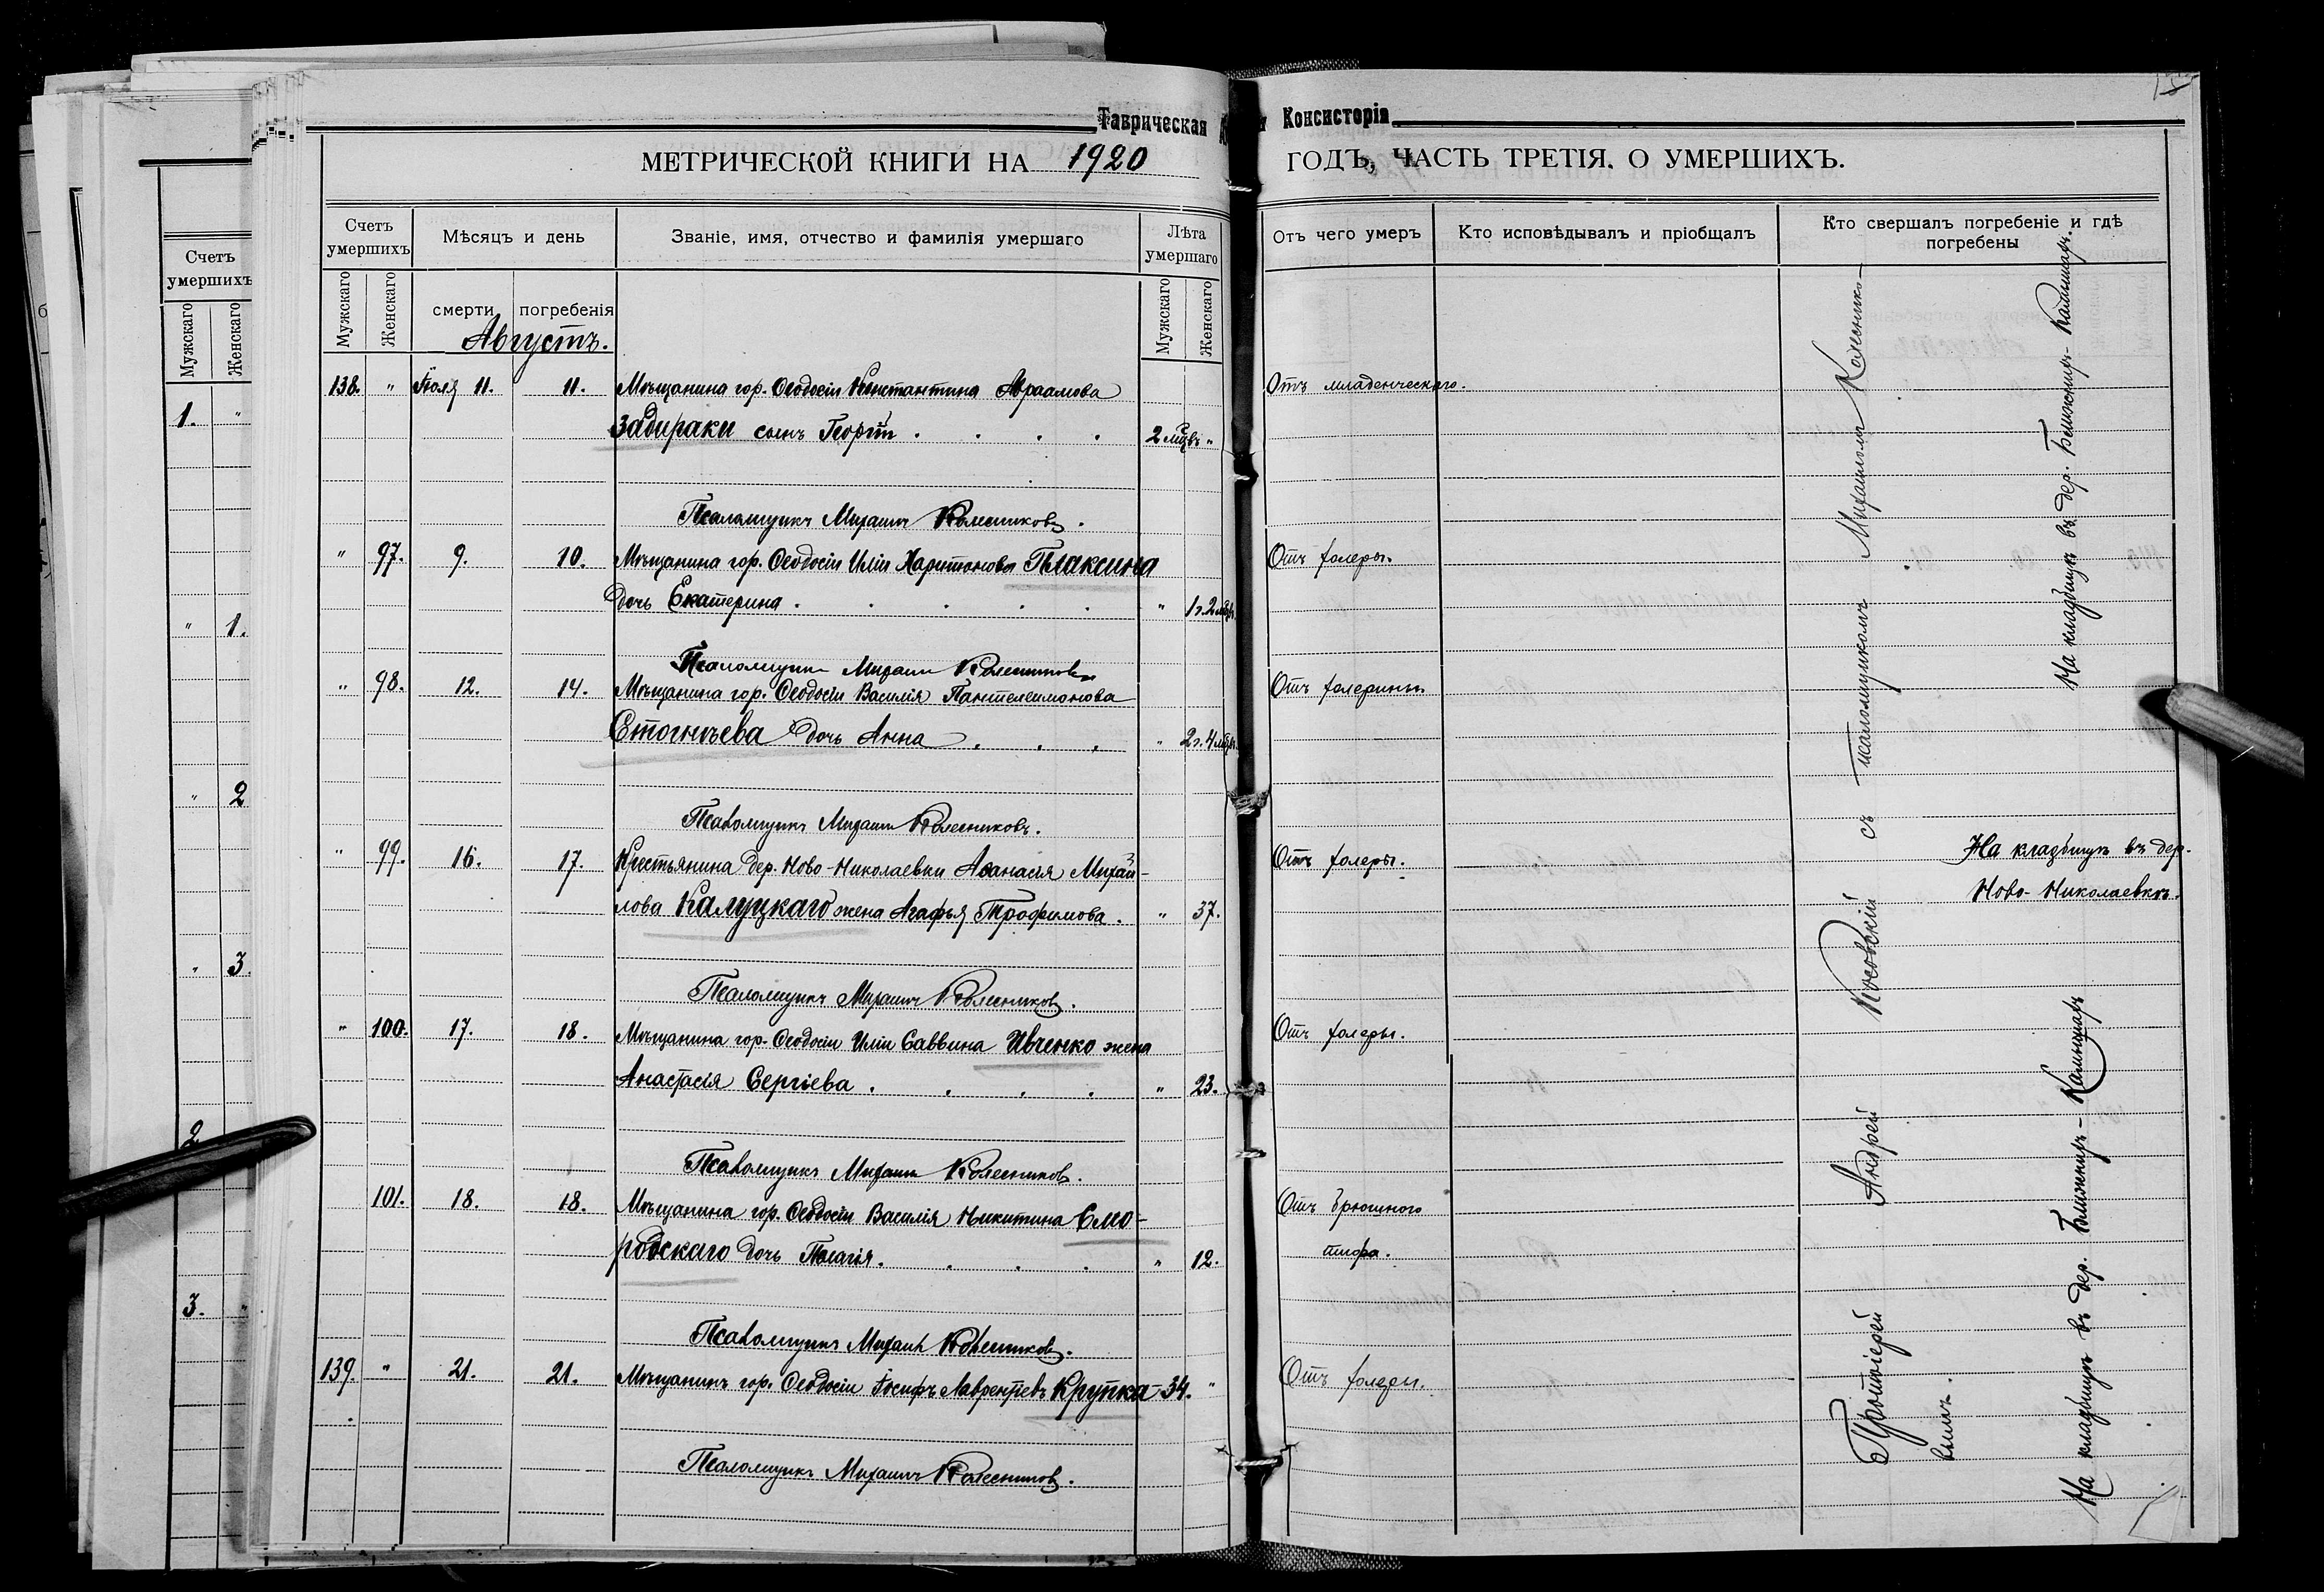 Таврическая
Консисторія
МЕТРИЧЕСКОЙ КНИГИ НА 1920
ГОДЪ, ЧАСТЬ ТРЕТІЯ. О УМЕРШИХЪ.
Счетъ умершихъ
Мужскаго
Женскаго
Мѣсяцъ и день
смерти
погребенія
Званіе, имя, отчество и фамилія умершаго
Лѣта умершаго
Мужскаго
Женскаго
Отъ чего умеръ
Кто исповѣдывалъ и пріобщалъ
Кто свершалъ погребеніе и гдѣ
погребены
Августъ.
138. " Іюля 11. 11. Мѣщанина гор. Ѳеодосіи Константина Авраамова Отъ младенческаго.
Задираки сынъ Георгій . . . . 2 мѣс. "
Псаломщикъ Михаилъ Колесниковъ.
" 97. 9. 10. Мѣщанина гор. Ѳеодосіи Иліи Харитонова Плаксина Отъ холеры.
дочь Екатерина . . . . . " 1 г. 2 мѣс.
Псаломщикъ Михаилъ Колесниковъ
" 98. 12. 14. Мѣщанина гор. Ѳеодосіи Василія Пантелеимонова Отъ холерины.
Стогнѣева дочь Анна . . . " 2 г. 4 мѣс.
Псаломщикъ Михаилъ Колесниковъ.
" 99. 16. 17. Крестьянина дер. Ново-Николаевки Аѳанасія Михай- Отъ холеры.
лова Калуцкаго жена Агафья Трофимова. " 37.
Псаломщикъ Михаилъ Колесниковъ.
" 100. 17. 18. Мѣщанина гор. Ѳеодосіи Иліи Саввина Ивченко жена Отъ холеры.
Анастасія Сергіева . . . . " 23.
Псаломщикъ Михаилъ Колесниковъ.
101. 18. 18. Мѣщанина гор. Ѳеодосіи Василія Никитина Смо- Отъ брюшного
родскаго дочь Пелагія. . . . " 12. тифа.
Псаломщикъ Михаилъ Колесниковъ.
139. " 21. 21. Мѣщанинъ гор. Ѳеодосіи Іосифъ Лаврентіевъ Крупка - 34. " Отъ холеры.
Псаломщикъ Михаилъ Колесниковъ.
Протоіерей Андрей Косовскій съ псаломщикомъ Михаиломъ Колеснико-
вымъ.
На кладбищѣ въ дер.
На кладбищѣ въ дер.
Ново-Николаевкѣ.
На кладбищѣ въ дер.
Счетъ
умершихъ
Мужскаго
Женскаго
1. "
" 1.
" 2
" 3.
2
3. "